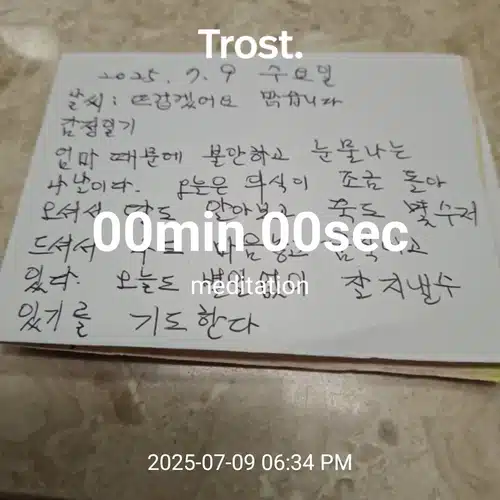 Trost.
2025. 7. 9 수요일
날씨: 뜨겁겠어요 맑습니다
감정일기
엄마 때문에 불안하고 눈물나는
나날이다. 오늘은 의식이 조금 돌아
오셔서 알아보고 죽도 몇수저
드셔서
00min 00sec
있다. 오늘도 별일없이 잘 지낼수
meditation
있기를 기도한다
2025-07-09 06:34 PM